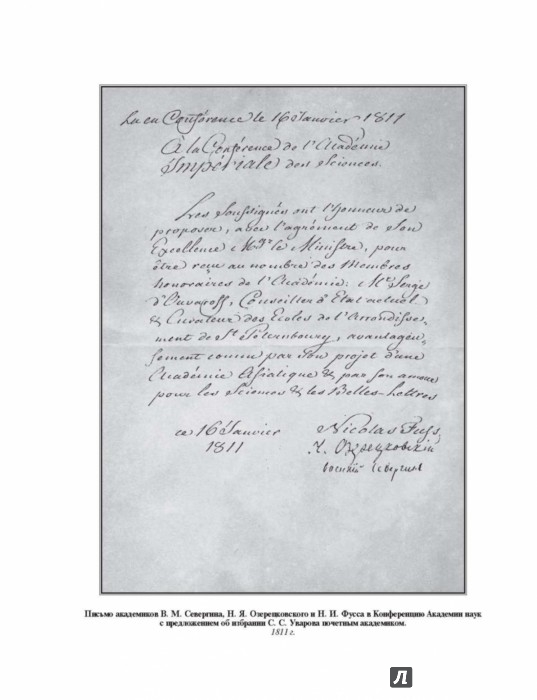 Lu en Conférence le 16 Janvier 1811
À la Conférence de l'Académie
Impériale des Sciences.
Les Soussignés ont l'honneur de
proposer, avec l'agrément de Son
Excellence Mgr le Ministre, pour
être reçu au nombre des Membres
honoraires de l'Académie: Mr Serge
d'Ouvaroff, Conseiller d'Etat actuel
& Curateur des Ecoles de l'Arrondisse-
ment de St Pétersbourg, avantageu-
sement connu par son projet d'une
Académie Asiatique & par son amour
pour les Sciences & les Belles-Lettres
ce 16 Janvier
1811
Nicolas Fuss,
Н. Озерецковскій
Василій Севергинъ
Письмо академиков В. М. Севергина, Н. Я. Озерецковского и Н. И. Фусса в Конференцию Академии наук
с предложением об избрании С. С. Уварова почетным академиком.
1811 г.
Л